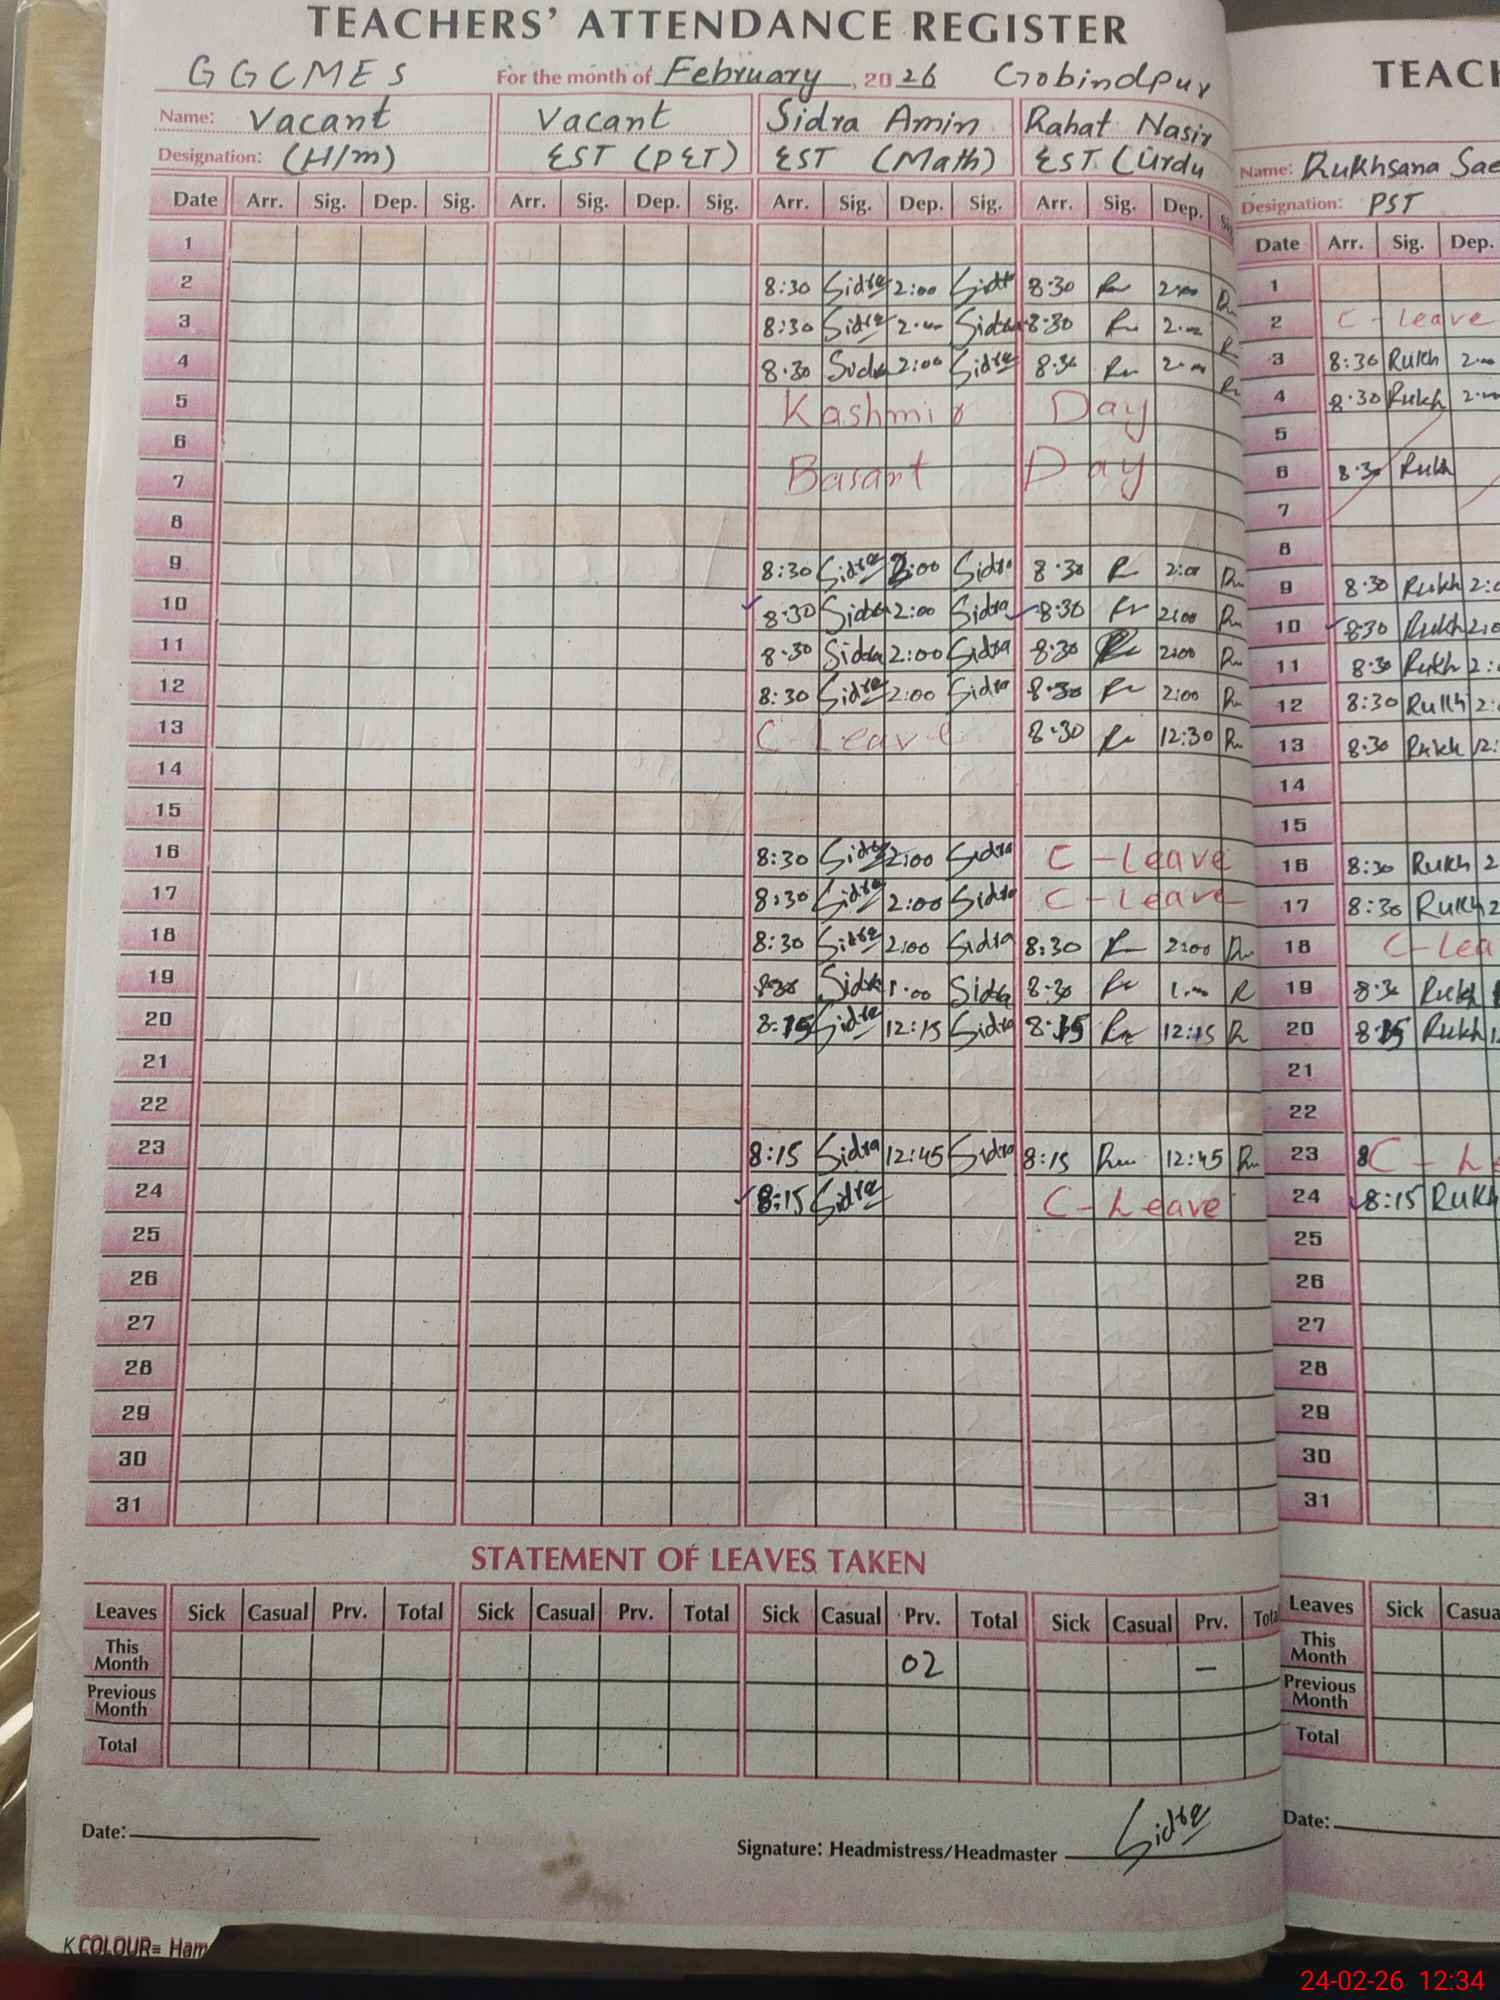 TEACHERS' ATTENDANCE REGISTER
GGCMES For the month of February, 2026 Gobindpur
Name: Vacant Vacant Sidra Amin Rahat Nasir
Designation: (H/m) EST (PET) EST (Math) EST (Urdu
Date Arr. Sig. Dep. Sig. Arr. Sig. Dep. Sig. Arr. Sig. Dep. Sig. Arr. Sig. Dep.
1
2 8:30 Sidra 2:00 Sidra 8:30 2:00
3 8:30 Sidra 2:00 Sidra 8:30 2:00
4 8:30 Sidra 2:00 Sidra 8:30 2:00
5 Kashmir Day
6
7 Basant Day
8
9 8:30 Sidra 2:00 Sidra 8:30 2:00
10 8:30 Sidra 2:00 Sidra 8:30 2:00
11 8:30 Sidra 2:00 Sidra 8:30 2:00
12 8:30 Sidra 2:00 Sidra 8:30 2:00
13 C-Leave 8:30 12:30
14
15
16 8:30 Sidra 2:00 Sidra C-Leave
17 8:30 Sidra 2:00 Sidra C-Leave
18 8:30 Sidra 2:00 Sidra 8:30 2:00
19 8:30 Sidra 1:00 Sidra 8:30 1:00
20 8:15 Sidra 12:15 Sidra 8:15 12:15
21
22
23 8:15 Sidra 12:45 Sidra 8:15 12:45
24 8:15 Sidra C-Leave
25
26
27
28
29
30
31
STATEMENT OF LEAVES TAKEN
Leaves Sick Casual Prv. Total Sick Casual Prv. Total Sick Casual Prv. Total Sick Casual Prv. Total
This Month 02 –
Previous Month
Total
Date:
Signature: Headmistress/Headmaster Sidra
K COLOUR= Ham
TEACH
Name: Rukhsana Sae
Designation: PST
Date Arr. Sig. Dep.
1
2 C-Leave
3 8:30 Rukh 2:00
4 8:30 Rukh 2:00
5
6 8:30 Rukh
7
8
9 8:30 Rukh 2:0
10 8:30 Rukh 2:0
11 8:30 Rukh 2:
12 8:30 Rukh 2:
13 8:30 Rukh 12:
14
15
16 8:30 Rukh 2
17 8:30 Rukh 2
18 C-Lea
19 8:30 Rukh
20 8:15 Rukh 1
21
22
23 C-Le
24 8:15 Rukh
25
26
27
28
29
30
31
Leaves Sick Casua
This Month
Previous Month
Total
Date:
24-02-26 12:34